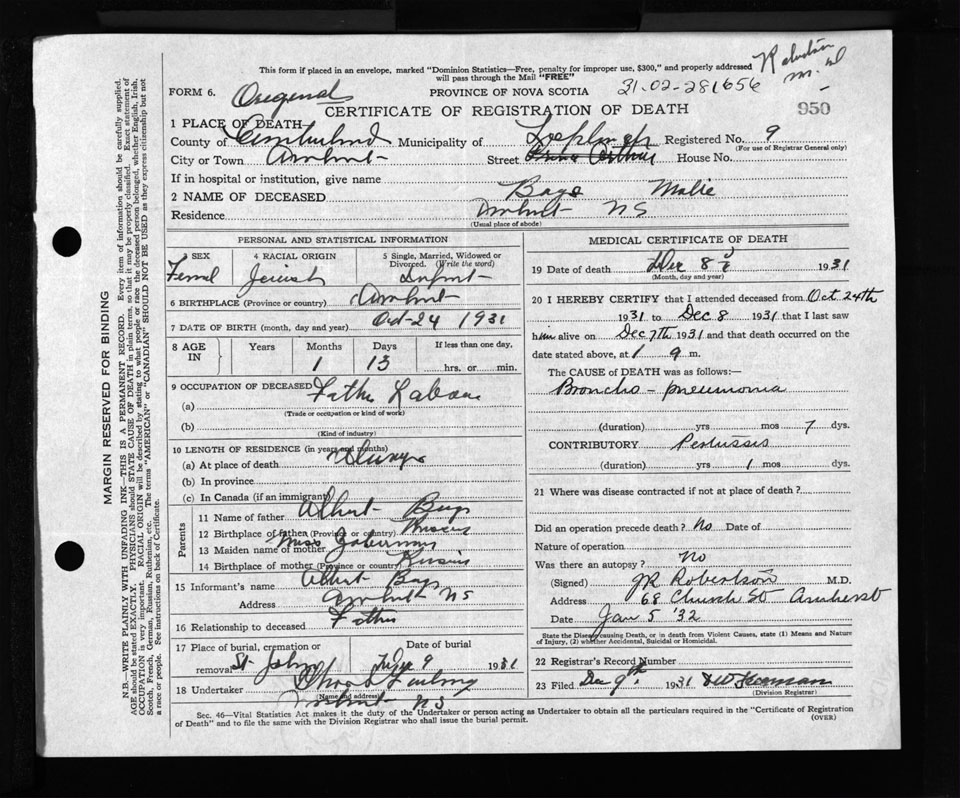 This form if placed in an envelope, marked "Dominion Statistics—Free, penalty for improper use, $300," and properly addressed
will pass through the Mail "FREE"
FORM 6. Original PROVINCE OF NOVA SCOTIA 31-02-281656
CERTIFICATE OF REGISTRATION OF DEATH 950
1 PLACE OF DEATH
County of Cumberland Municipality of Registered No. 9
(For use of Registrar General only)
City or Town Amherst Street House No.
If in hospital or institution, give name
2 NAME OF DECEASED
Residence Amherst NS
(Usual place of abode)
PERSONAL AND STATISTICAL INFORMATION
3 SEX 4 RACIAL ORIGIN 5 Single, Married, Widowed or
Divorced. (Write the word)
Jewish Infant
6 BIRTHPLACE (Province or country) Amherst
7 DATE OF BIRTH (month, day and year) Oct-24 1931
8 AGE IN Years Months Days If less than one day,
1 13 hrs. or min.
9 OCCUPATION OF DECEASED Father
(a)
(Trade or occupation or kind of work)
(b)
(Kind of industry)
10 LENGTH OF RESIDENCE (in years and months)
(a) At place of death
(b) In province
(c) In Canada (if an immigrant)
Parents
11 Name of father Albert
12 Birthplace of father (Province or country)
13 Maiden name of mother Miss
14 Birthplace of mother (Province or country)
15 Informant's name Albert
Address Amherst NS
16 Relationship to deceased Father
17 Place of burial, cremation or removal St John Date of burial 9 1931
18 Undertaker
(Name and address)
Amherst NS
MEDICAL CERTIFICATE OF DEATH
19 Date of death Dec 8 1931
(Month, day and year)
20 I HEREBY CERTIFY that I attended deceased from Oct 24th
1931 to Dec 8 1931 that I last saw
him alive on Dec 7th 1931 and that death occurred on
date stated above, at 1 m.
The CAUSE of DEATH was as follows:—
Broncho-pneumonia
(duration) yrs mos 7 dys.
CONTRIBUTORY Pertussis
(duration) yrs 1 mos dys.
21 Where was disease contracted if not at place of death?
Did an operation precede death? No Date of
Nature of operation
Was there an autopsy? No
(Signed) JR Robertson M.D.
Address 68 Church St Amherst
Date Jan 5 '32
State the Disease causing Death, or in death from Violent Causes, state (1) Means and Nature
of Injury, (2) whether Accidental, Suicidal or Homicidal.
22 Registrar's Record Number
23 Filed Dec 9th 1931
(Division Registrar)
Sec. 46—Vital Statistics Act makes it the duty of the Undertaker or person acting as Undertaker to obtain all the particulars required in the "Certificate of Registration
of Death" and to file the same with the Division Registrar who shall issue the burial permit. (OVER)
MARGIN RESERVED FOR BINDING
N.B.—WRITE PLAINLY WITH UNFADING INK—THIS IS A PERMANENT RECORD. Every item of information should be carefully supplied.
AGE should be stated EXACTLY. PHYSICIANS should STATE CAUSE OF DEATH in plain terms, so that it may be properly classified. Exact statement of
OCCUPATION is very important. RACIAL ORIGIN will be described by stating to what people or race the deceased person belonged, whether English, Irish,
Scotch, French, German, Russian, Ruthenian, etc. The terms "AMERICAN" or "CANADIAN" SHOULD NOT BE USED as they express citizenship but not
a race or people. See instructions on back of Certificate.